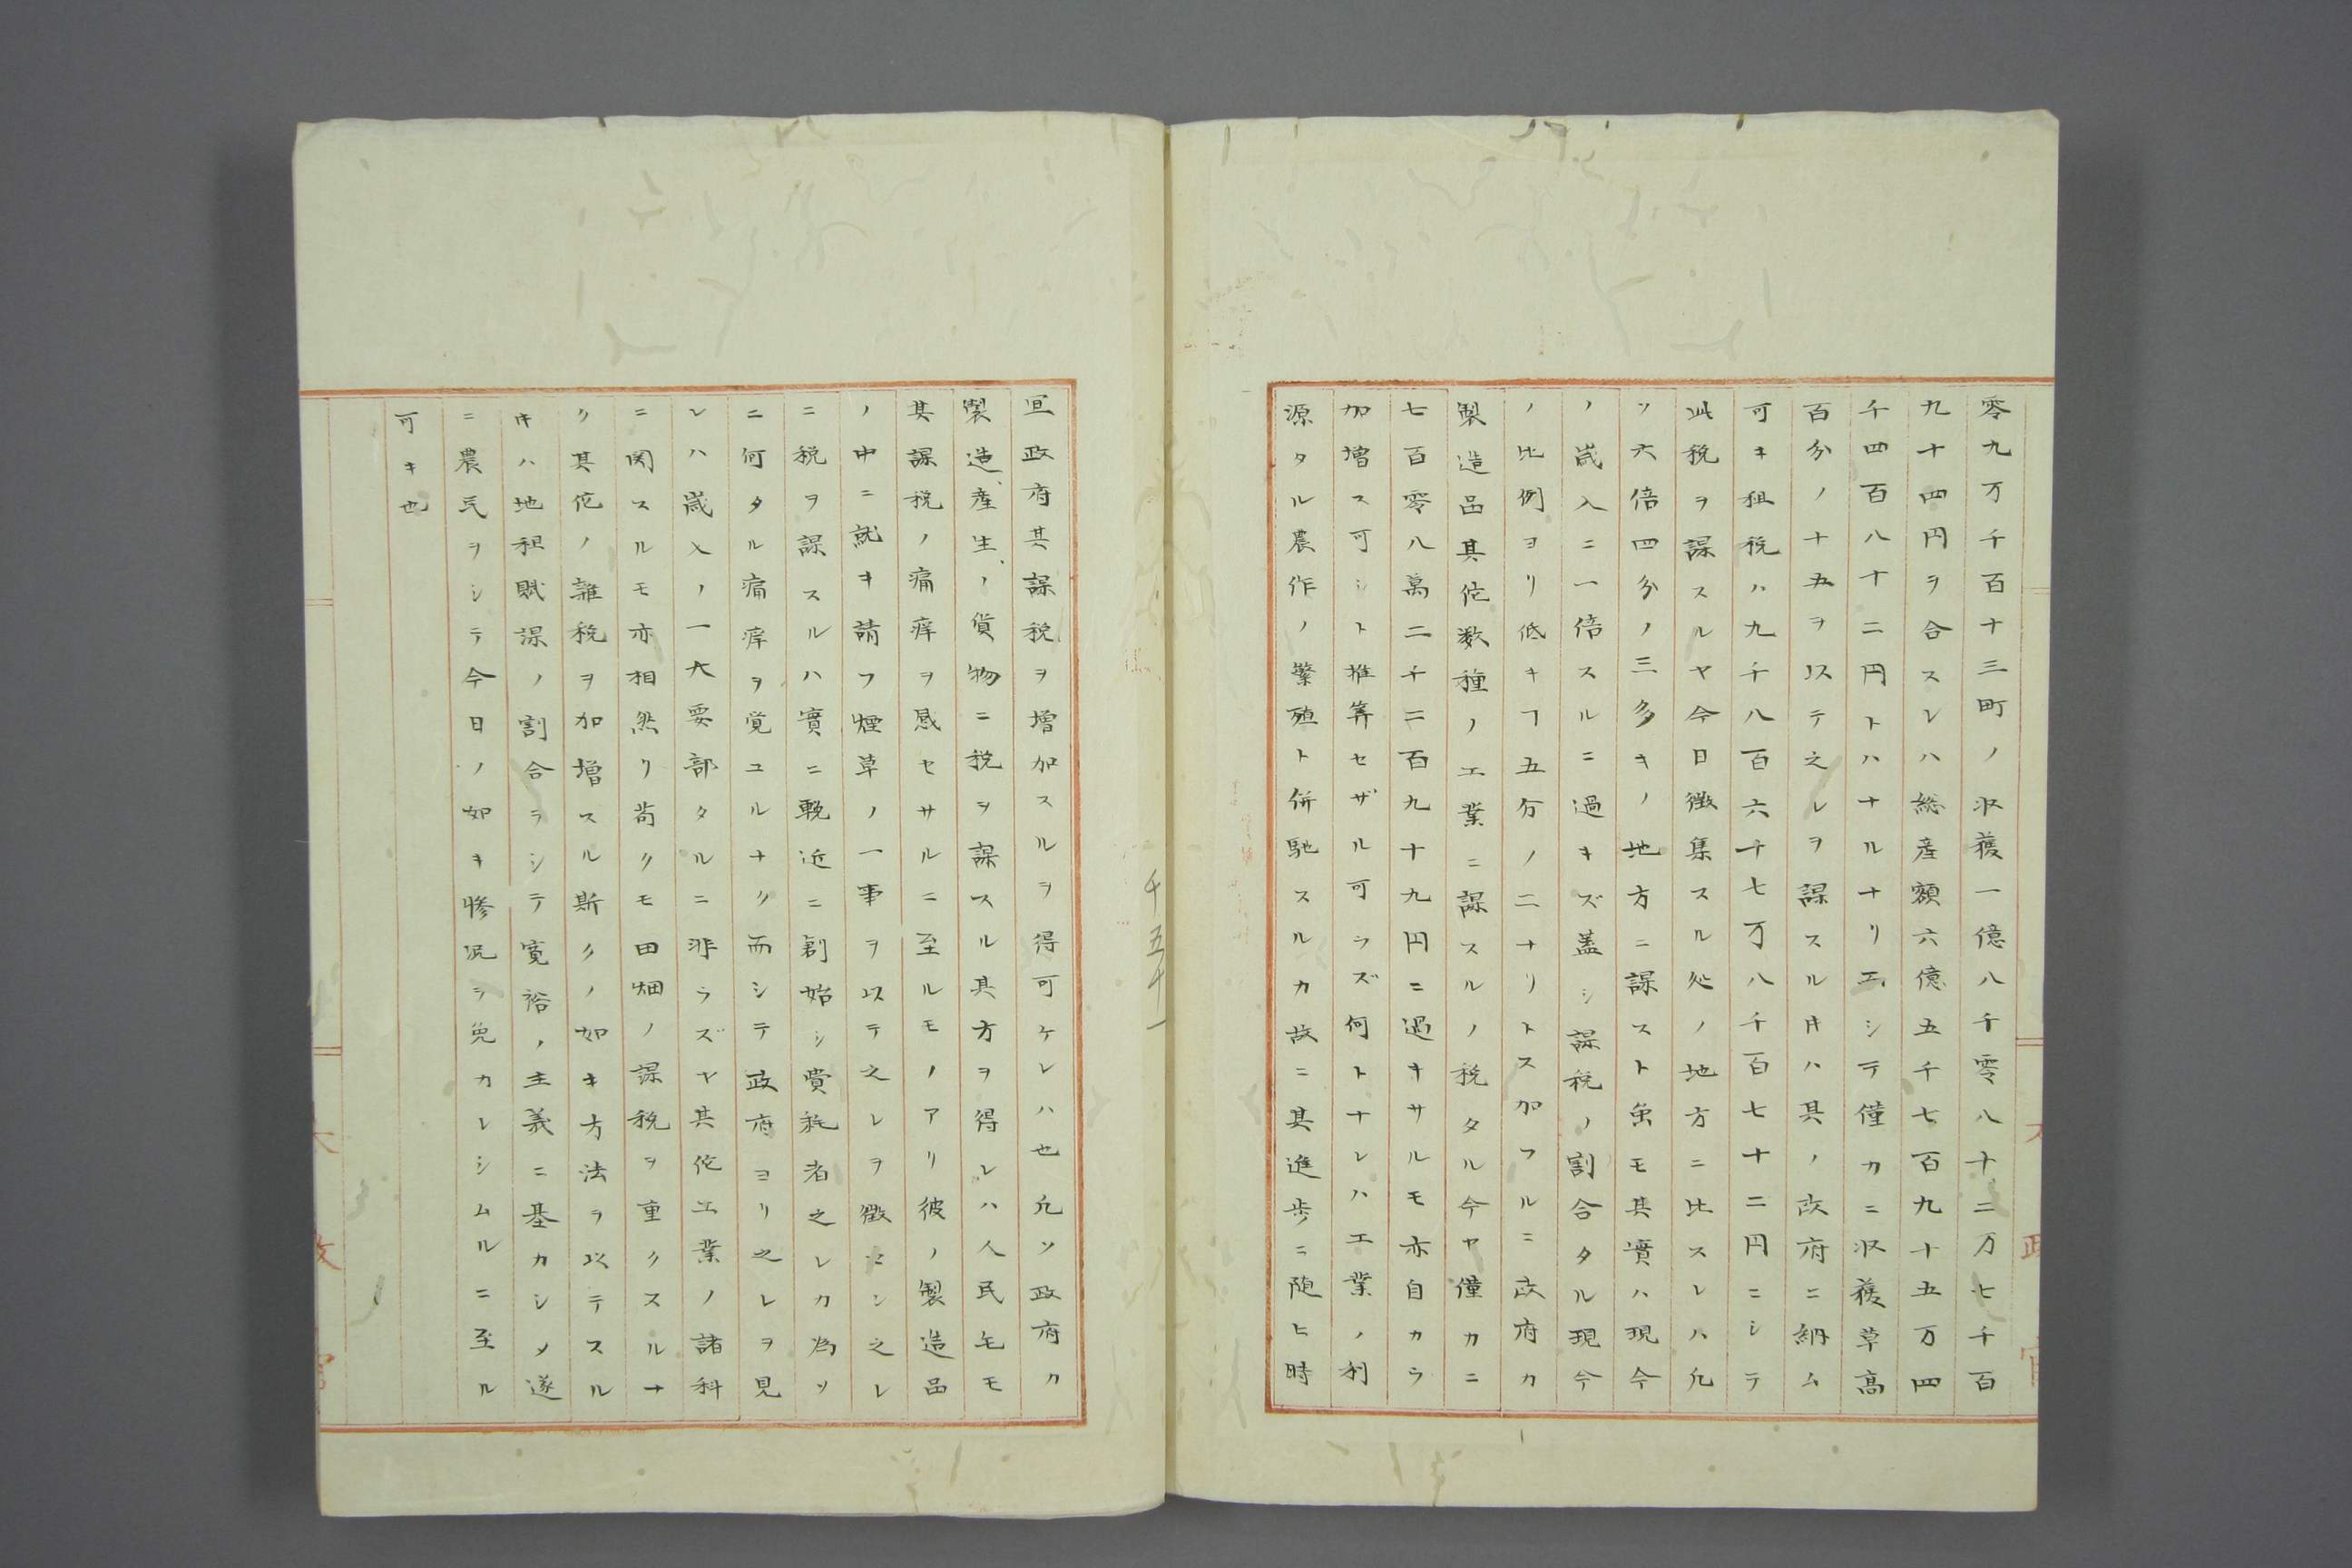 零九万千百十三町ノ収穫一億八千零八十二万七千百
九十四円ヲ合スレハ総産額六億五千七百九十五万四
千四百八十二円トハナルナリ而シテ僅カニ収穫草高
百分ノ十五ヲ以テ之レヲ課スル𪜈ハ其ノ政府ニ納ム
可キ租税ハ九千八百六十七万八千百七十二円ニシテ
此税ヲ課スルヤ今日徴集スル処ノ地方ニ比スレハ凡
ソ六倍四分ノ三多キノ地方ニ課スト虽モ其實ハ現今
ノ歳入ニ一倍スルニ過キズ蓋シ課税ノ割合タル現今
ノ比例ヨリ低キヿ五分ノ二ナリトス加フルニ政府カ
製造品其佗数種ノ工業ニ課スルノ税タル今ヤ僅カニ
七百零八萬二千二百九十九円ニ過キサルモ亦自カラ
加増ス可シト推算セザル可ラズ何トナレハ工業ノ利
源タル農作ノ繁殖ト併馳スルカ故ニ其進歩ニ随ヒ時
宜政府其課税ヲ増加スルヲ得可ケレハ也凡ソ政府カ
製造、産生、ノ貨物ニ税ヲ課スル其方ヲ得レハ人民毛モ
其課税ノ痛痒ヲ感セサルニ至ルモノアリ彼ノ製造品
ノ中ニ就キ請フ煙草ノ一事ヲ以テ之レヲ徴セン之レ
ニ税ヲ課スルハ實ニ輓近ニ創始シ費耗者之レカ為ソ
ニ何タル痛痒ヲ覚ユルナク而シテ政府ヨリ之レヲ見
レハ歳入ノ一大要部タルニ非ラズヤ其佗工業ノ諸科
ニ関スルモ亦相然リ苟クモ田畑ノ課税ヲ重クスルナ
ク其佗ノ雑税ヲ加増スル斯クノ如キ方法ヲ以テスル
𪜈ハ地租賦課ノ割合ヲシテ寛裕ノ主義ニ基カシメ遂
ニ農民ヲシテ今日ノ如キ惨况ヲ免カレシムルニ至ル
可キ也
千五十一
太政官